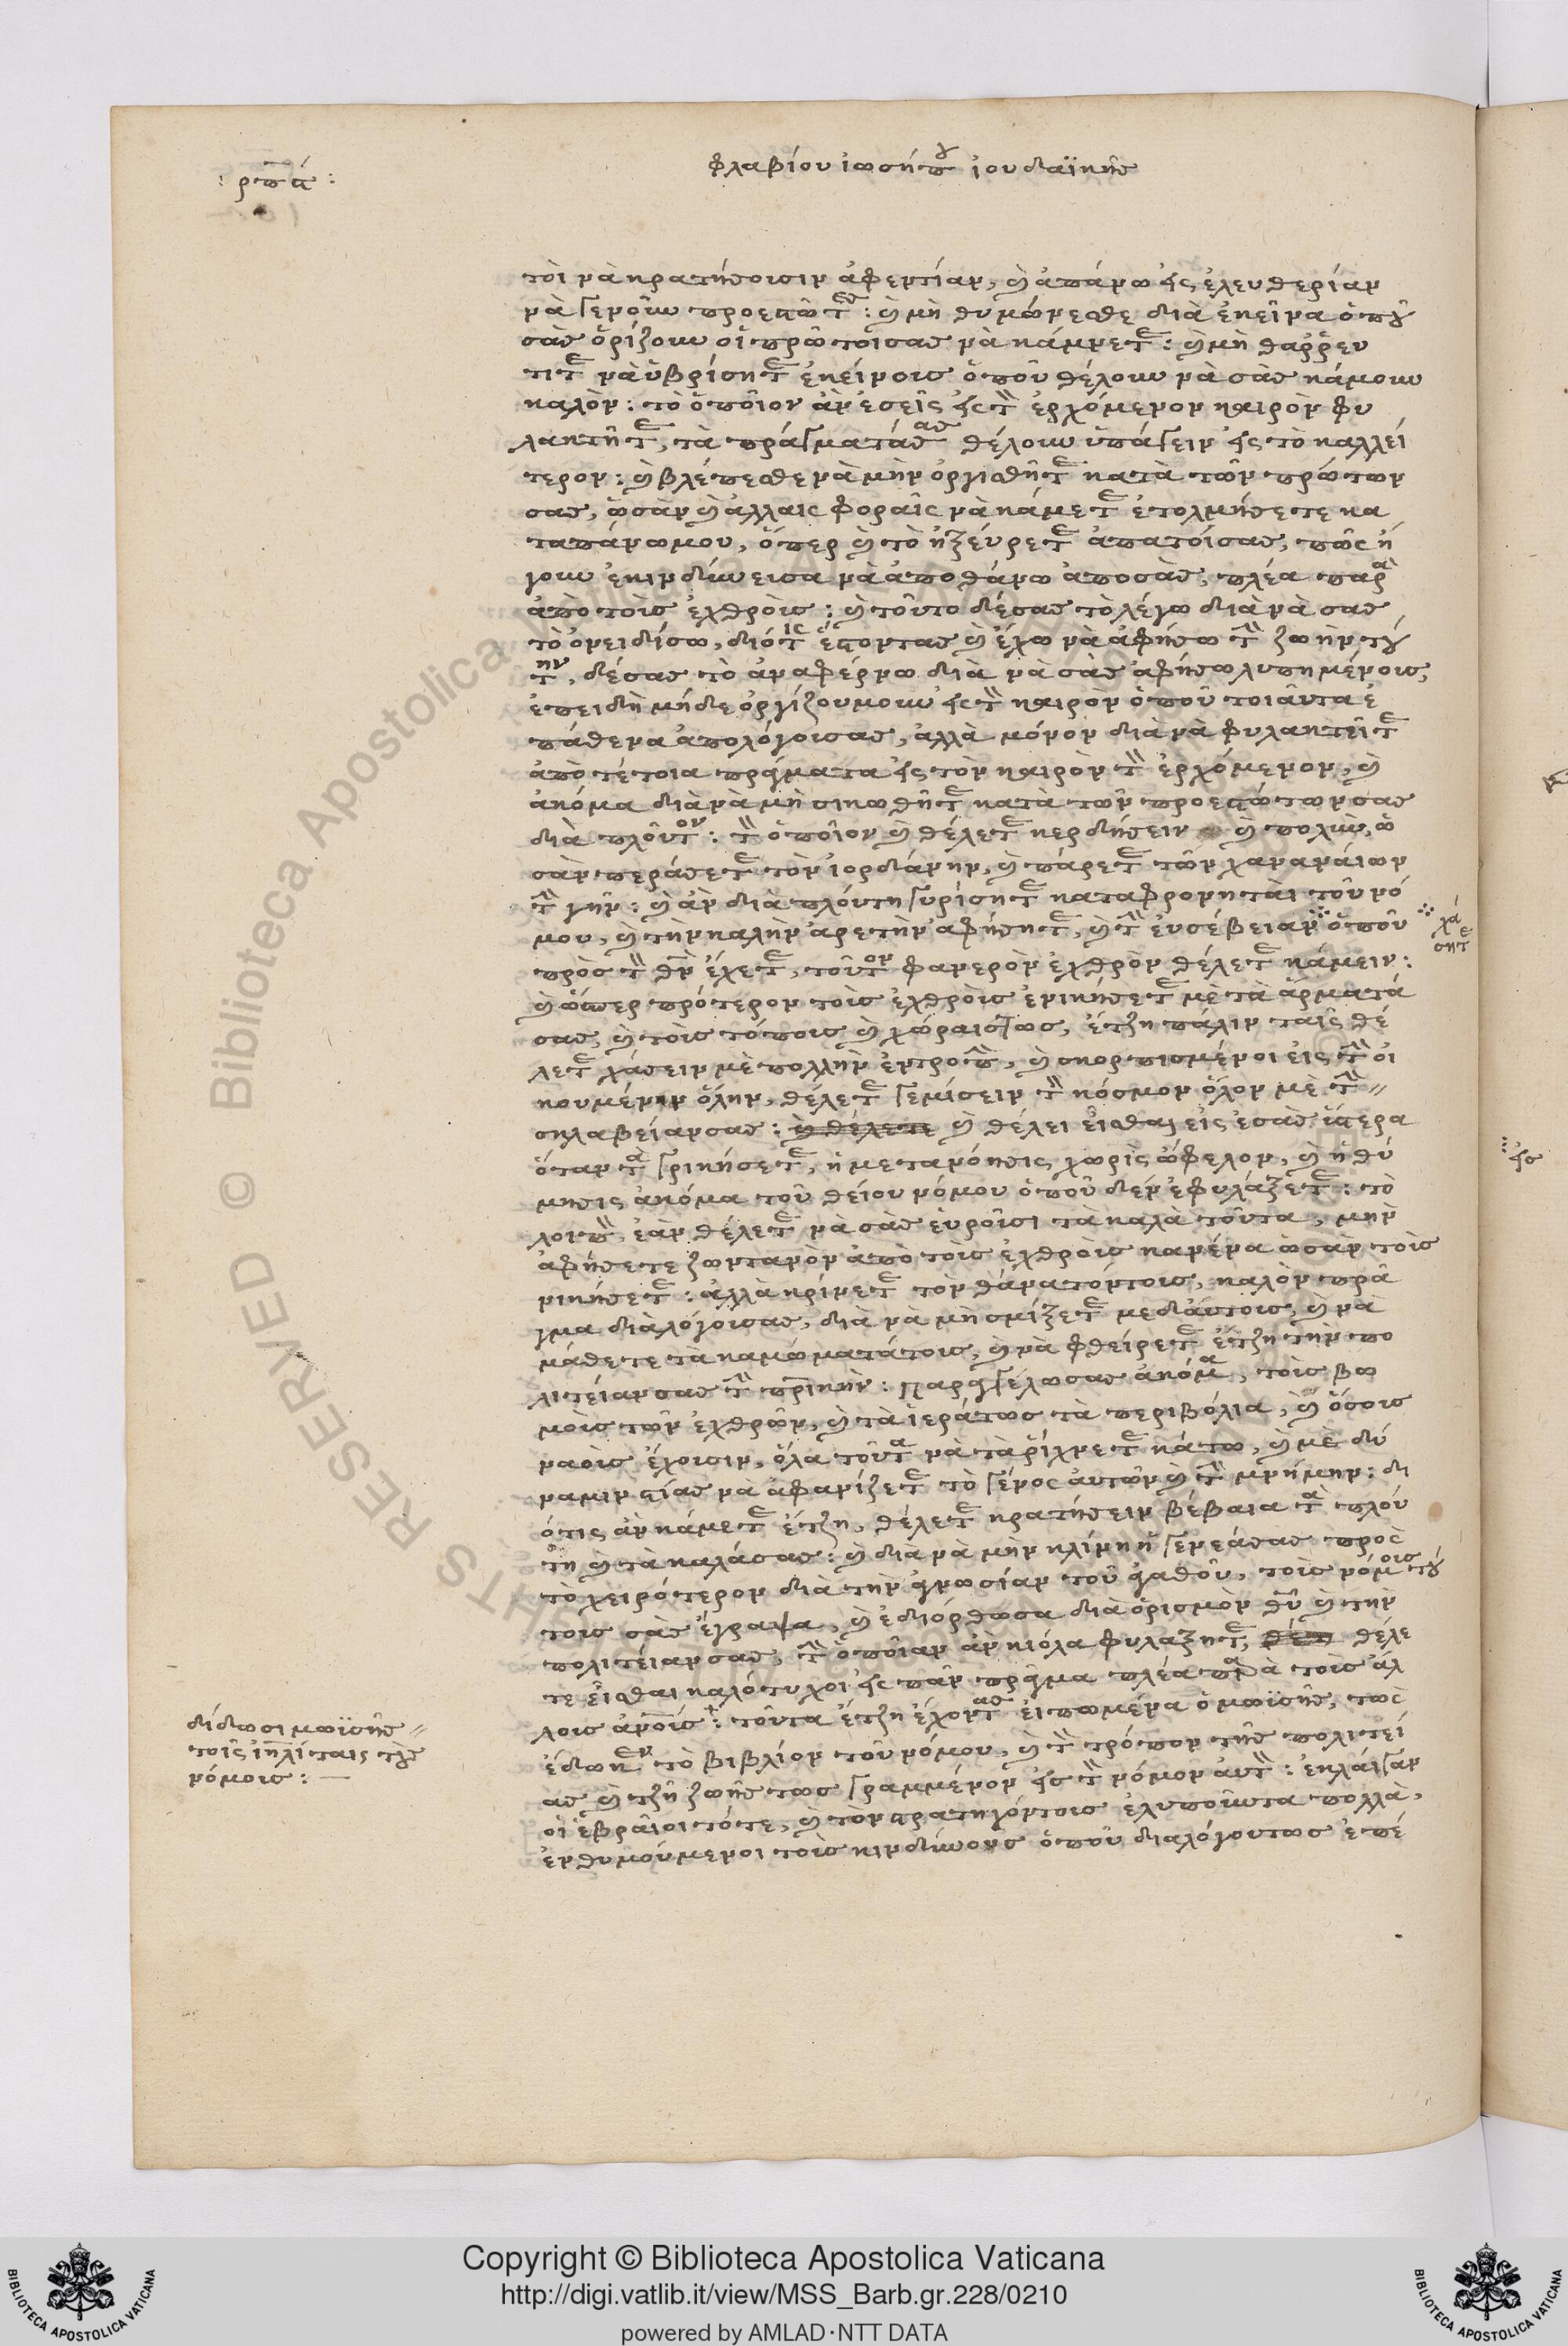 : ρπά :
φλαβίου ἰωσήπου ἰουδαϊκῆσ
τὸι νὰ κρατήσουσιν ἀφεντίαν, καὶ ἀπάνω εἰς ἐλευθερίαν
νὰ γενοῦν προεστῶτεσ : καὶ μὴ θυμώνεσθε διὰ ἐκεῖνα ὁποῦ
σὰσ ὁρίζουν οἱ πρῶτοίσασ νὰ κάμνετε : καὶ μὴ θαῤῥευ
τῆτε νὰ ὑβρίσητε ἐκείνοισ ὁποῦ θέλουν νὰ σὰσ κάμουν
καλὸν : τὸ ὁποῖον ἂν ἐσεῖς εἰς τὸν ἐρχόμενον καιρὸν φυ
λακτῆτε, τὰ πράγματάσασ θέλουν ὑπάγειν εἰς τὸ καλλεί
τερον : καὶ βλέπεσθε νὰ μὴν ὀργισθῆτε κατὰ τῶν πρώτων
σασ, ὡσὰν καὶ ἄλλαις φοραῖς νὰ κάμετε ἐτολμήσετε κα
ταπάνωμου, ὅπερ καὶ τὸ ἠξεύρετε ἀπατοίσασ, πῶς ἤ
γουν ἐκινδύνεισα νὰ ἀποθάνω ἀποσὰσ, πλέα παρὰ
ἀπὸ τοὶσ ἐχθρὸισ : καὶ τοῦτο δέσασ τὸ λέγω διὰ νὰ σασ
τὸ ὀνειδίσω, διότις ἔστοντασ καὶ ἔχω νὰ ἀφήσω τὴν ζωὴν τού
την, δέσασ τὸ ἀναφέρνω διὰ νὰ σὰσ ἀφήσω λυπημένοισ,
ἐπειδὴ μήδε ὀργίζουμουν εἰς τὸν καιρὸν ὁποῦ τοιαῦτα ἐ
πάθενα ἀπολόγουσασ, ἀλλὰ μόνον διὰ νὰ φυλακτεῖτε
ἀπὸ τέτοια πράγματα εἰς τὸν καιρὸν τὸν ἐρχόμενον, καὶ
ἀκόμα διὰ νὰ μὴ σικωθῆτε κατὰ τῶν προεστώτων σασ
διὰ πλοῦτον : τὸν ὁποῖον καὶ θέλετε κερδήσειν καὶ πολὺν, ὡ
σὰν περάσετε τὸν ἰορδάνην, καὶ πάρετε τῶν χαναναίων
τὴν γῆν : καὶ ἂν διὰ πλούτη γυρίσητε καταφρονηταὶ τοῦ νό
μου, καὶ τὴν καλὴν ἀρετὴν ἀφήσητε, καὶ τὴν ἐυσέβειαν ὁποῦ
χά
σητε
πρὸσ τὸν θν ἔχετε, τοῦτον φανερὸν ἐχθρὸν θέλετε κάμειν :
καὶ ὥσπερ πρότερον τοὶσ ἐχθρὸισ ἐνικήσετε μὲ τὰ ἄρματά
σασ, καὶ τοὶσ τόποισ καὶ χώραιστωσ, ἔτζη πάλιν ταῖς θέ
λετε χάσειν μὲ πολλὴν ἐντροπὴν, καὶ σκορπισμένοι εἰς τὴν οἰ
κουμένην ὅλην, θέλετε γεμίσειν τὸν κόσμον ὅλον μὲ τὴν
σκλαβείανσασ : καὶ θέλετε καὶ θέλει εἶσθαι εἰς ἐσὰσ ὕστερα
ὅταν τὰ γρικήσετε, ἡ μετανόησις χωρὶς ὤφελον, καὶ ἡ θύ
μησις ἀκόμα τοῦ θείου νόμου ὁποῦ δὲν ἐφυλάξετε : τὸ
λοιπὸν, ἐὰν θέλετε νὰ σὰσ εὑροῦσι τὰ καλὰ τοῦτα, μὴν
ἀφήσετε ζωντανὸν ἀπὸ τοὶσ ἐχθρὸισ κανένα ὡσὰν τοὶσ
νικήσετε : ἀλλὰ κρίνετε τὸν θάνατόντοισ, καλὸν πρᾶ
γμα διὰ λόγουσασ, διὰ νὰ μὴ σμίξετε μεδάυτοισ, καὶ νὰ
μάθετε τὰ καμώματάτοισ, καὶ νὰ φθείρετε ἔτζη τὴν πο
λιτείανσασ τὴν πρικὴν : παραγγέλωσασ ἀκόμα, τοὶσ βω
μοὶσ τῶν ἐχθρῶν, καὶ τὰ ἱεράτωσ τὰ περιβόλια, καὶ ὅσοισ
ναοὶσ ἔχουσιν, ὅλα τοῦτα νὰ τὰ ῥίχνετε κάτω, καὶ μὲ δύ
ναμιν στίασ νὰ ἀφανίζετε τὸ γένος ἀυτῶν καὶ τὴν μνήμην : δι
ότις ἂν κάμετε ἔτζη, θέλετε κρατήσειν βέβαια τὰ πλού
τη καὶ τὰ καλάσασ : καὶ διὰ νὰ μὴν κλίνη ἡ γενεάσασ πρὸς
τὸ χειρότερον διὰ τὴν ἀγνωσίαν τοῦ ἀγαθοῦ, τοὶσ νόμοισ τού
τοισ σὰσ ἔγραψα, καὶ ἐδιόρθωσα διὰ ὁρισμὸν θυ καὶ τὴν
πολιτείανσασ, τὴν ὁποῖαν ἂν κιόλα φυλάξητε, θέλε
τε εἶσθαι καλότυχοι εἰς πᾶν πρᾶγμα πλέα παρὰ τοὶσ ἄλ
λοισ ἀνοὶσ : τοῦτα ἔτζη ἔχοντασ εἰπωμένα ὁ μωϊσῆσ, τὼς
δίδωσι μωϊσῆσ
τοῖς ἰηλίταις τοὺσ
νόμοισ : —
ἔδωκεν τὸ βιβλίον τοῦ νόμου, καὶ τὸν τρόπον τῆσ πολιτεί
ασ καὶ τζῆ ζωῆσ τωσ γραμμένον εἰς τὸν νόμον ἀυτὸν : ἐκλάιγαν
οἱ ἑβραῖοι τότε, καὶ τὸν στρατηγόντοισ ἐλυποῦντα πολλὰ,
ἐνθυμούμενοι τοὶσ κινδύνουσ ὁποῦ διαλόγουτωσ ἐπέ
Copyright © Biblioteca Apostolica Vaticana
http://digi.vatlib.it/view/MSS_Barb.gr.228/0210
powered by AMLAD·NTT DATA